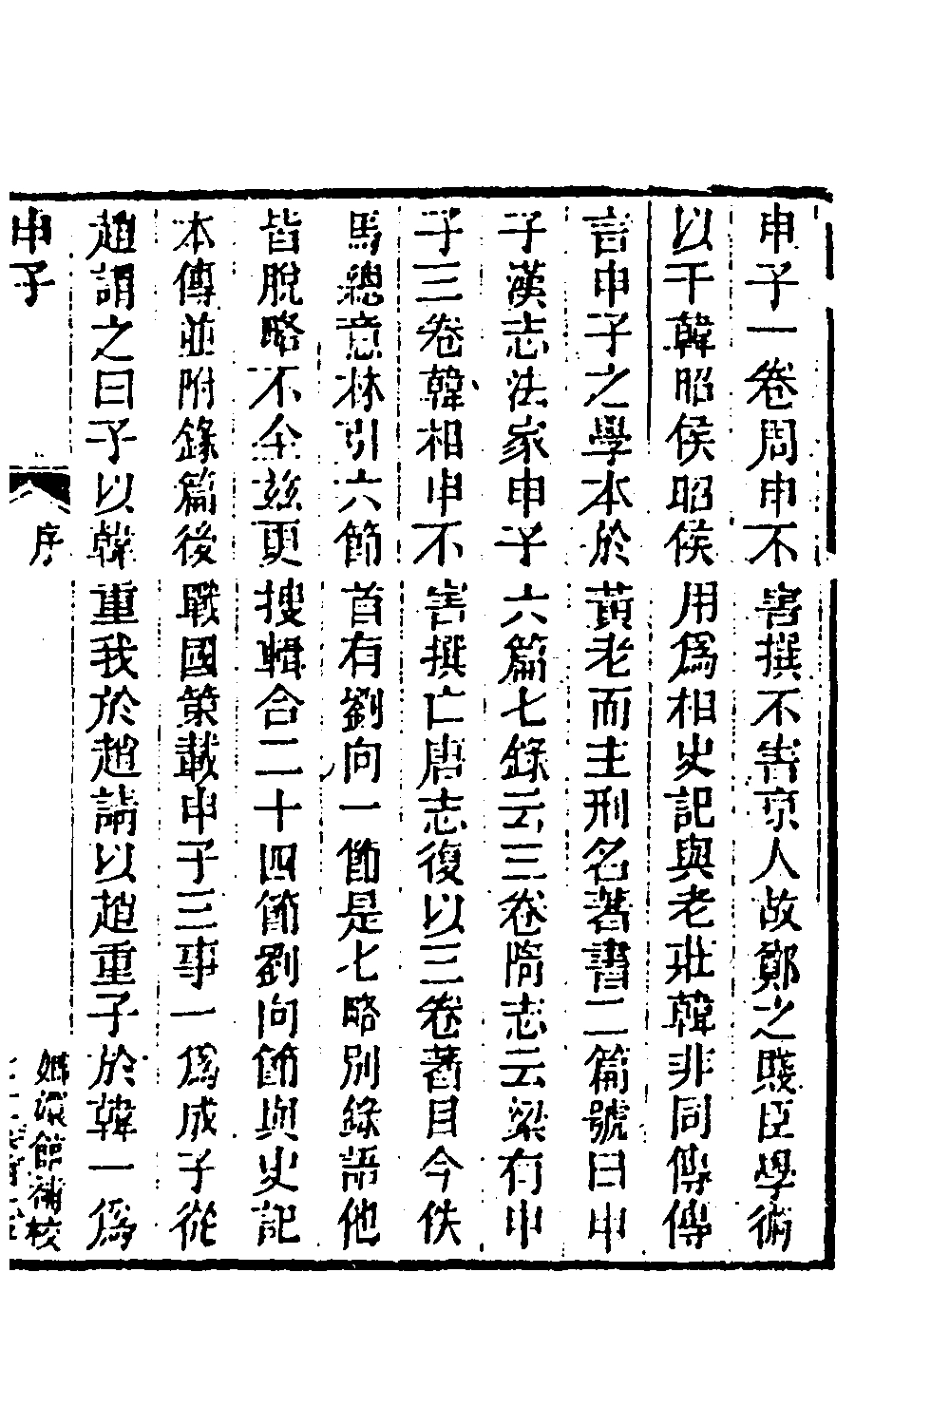 申子一卷周申不害撰不害京人故鄭之賤臣學術
以干韓昭侯昭侯用爲相史記與老莊韓非同傳傳
言申子之學本於黃老而主刑名著書二篇號曰申
子漢志法家申子六篇七錄云三卷隋志云梁有申
子三卷韓相申不害撰亡唐志復以三卷著目今佚
馬總意林引六節首有劉向一節是七略別錄語他
皆脫略不全茲更搜輯合二十四節劉向節與史記
本傳並附錄篇後戰國策載申子三事一爲成子從
趙謂之曰子以韓重我於趙請以趙重子於韓一爲
申子
序
嫏嬛館補校